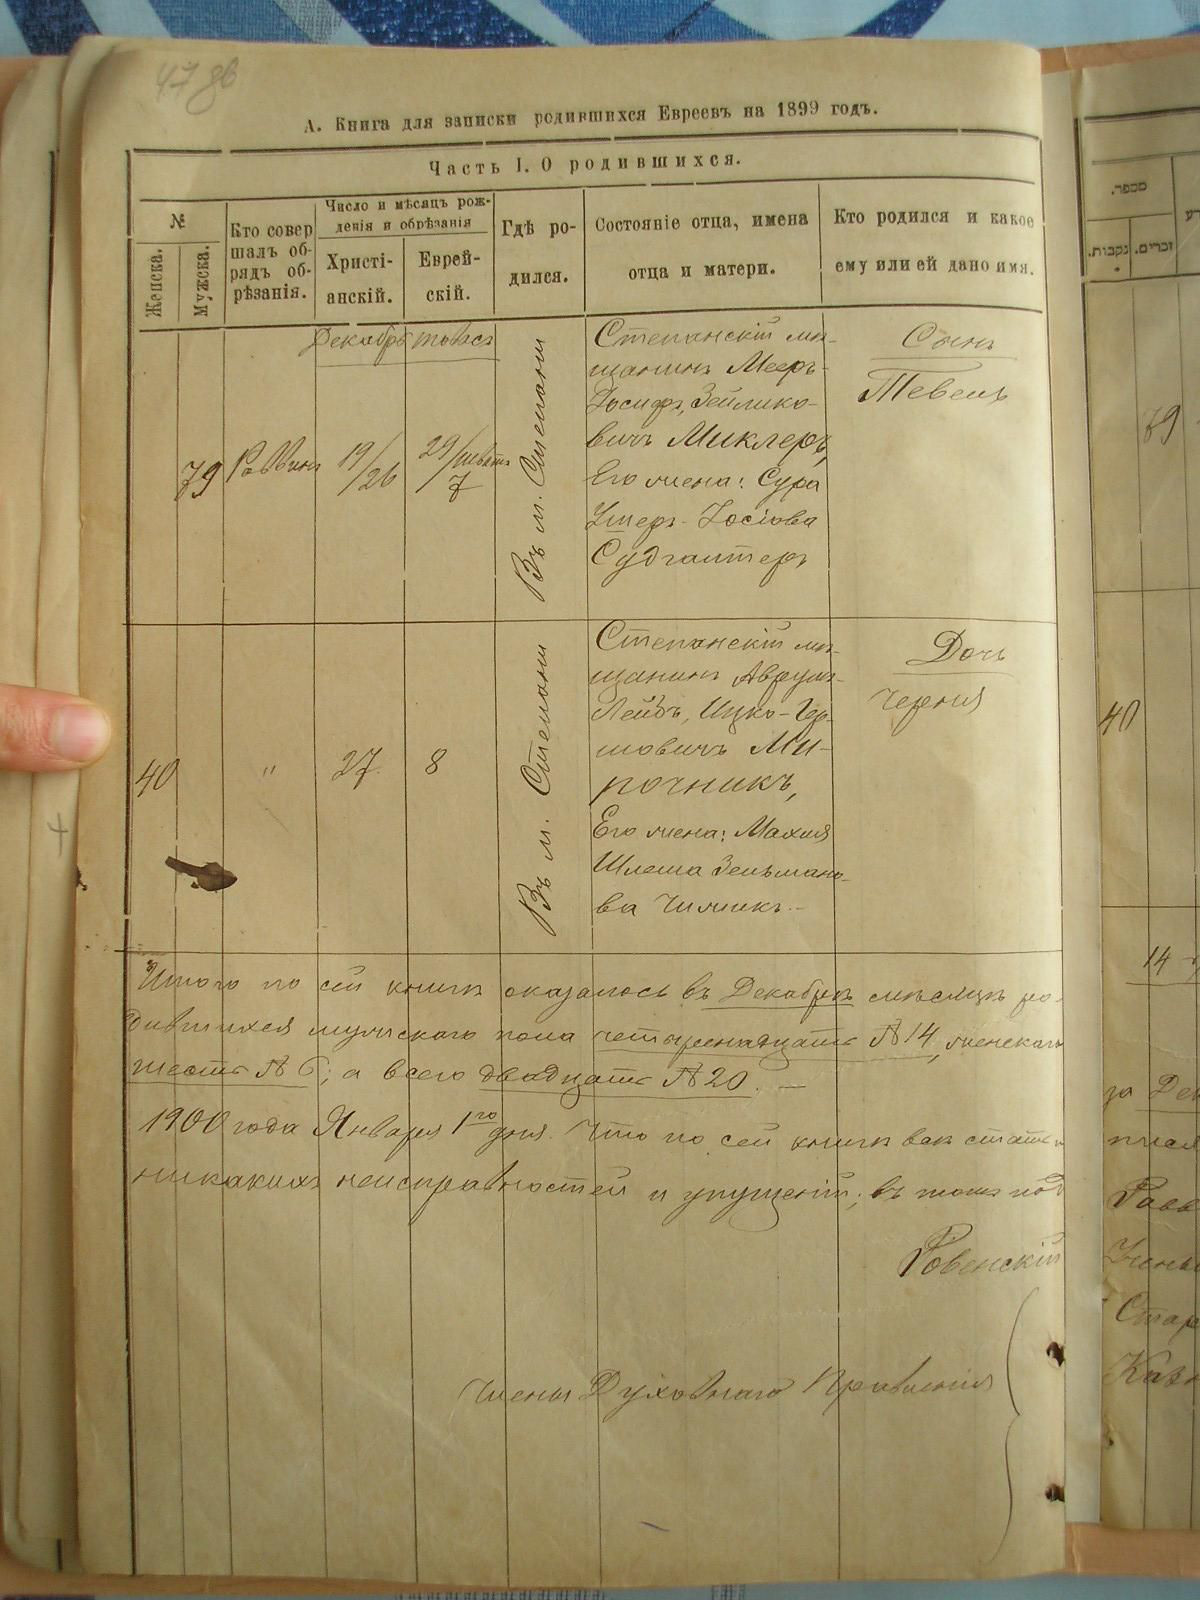 47 дв
А. Книга для записки родившихся Евреевъ на 1899 годъ.
Часть I. О родившихся.
№
Женска.
Мужска.
Кто совер
шалъ об-
рядъ об-
рѣзанія.
Число и мѣсяцъ рож-
денія и обрѣзанія
Христі-
анскій.
Еврей-
скій.
Гдѣ ро-
дился.
Состояніе отца, имена
отца и матери.
Кто родился и какое
ему или ей дано имя.
Декабрь
79
Раввинъ
19/26
29/шватъ 7
Въ м. Степани
Степанскій мѣ-
щанинъ Мееръ-
Іосифъ, Зейлико-
вичъ Миклеръ,
Его жена: Сура
Эстеръ-Іосіова
Судгалтеръ
Сынъ
Тевель
40
"
27.
8
Въ м. Степани
Степанскій мѣ-
щанинъ Аврумъ-
Лейбъ, Ицко-Гер-
шовичъ Ми-
рочникъ,
Его жена: Махля
Шлема Зельмано-
ва Чижикъ.-
Дочь
Черня
Итого по сей книгѣ оказалось въ Декабрѣ мѣсяцѣ ро-
дившихся мужскаго пола четырнадцать №14, женскаго
шесть №6; а всего двадцать №20. —
1900 года Января 1го дня. Что по сей книгѣ всѣ статьи
никакихъ неисправностей и упущеній; въ томъ под
Ровенскій
Члены Духовнаго Правленія
מספר.
נקבות.
זכרים.
79
40
14
за Дек
Равв
Учены
Стар
Казн